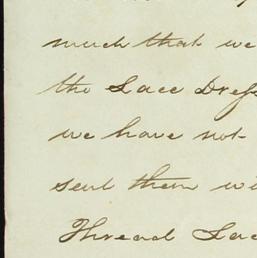 much that we
the Lace Dress
we have not
sent them wi
Thread Lac